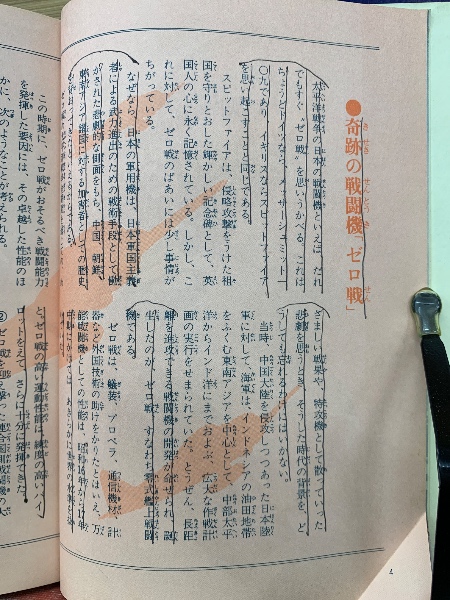 ●奇跡の戦闘機「ゼロ戦」
太平洋戦争の日本の戦闘機といえば、だれ
でもすぐ〝ゼロ戦〟を思いうかべる。これは
ちょうどドイツなら、メッサーシュミット一
〇九であり、イギリスならスピットファイア
を思い起こすことと同じである。
スピットファイアは、侵略攻撃をうけた祖
国を守りとおした輝かしい記念碑として、英
国人の心に永く記憶されている。しかし、こ
れに対して、ゼロ戦のばあいには少し事情が
ちがっている。
なぜなら、日本の軍用機は、日本軍国主義
者による武力進出のための戦術手段として働
がされた悲劇的な側面をもち、中国、朝鮮、
東南アジア諸国に対する加害者としての歴史
ざましい戦果や、特攻機として散っていった
悲劇を思うとき、そうした時代の背景を、ど
うしても忘れるわけにはいかない。
当時、中国大陸を侵攻しつつあった日本陸
軍に対して、海軍は、インドネシアの油田地帯
をふくむ東南アジアを中心として、中部太平
洋からインド洋にまでおよぶ、広大な作戦計
画の実行をせまられていた。とうぜん、長距
離を進攻できる戦闘機の開発が命ぜられ、誕
生したのが、ゼロ戦、すなわち零式艦上戦闘
機である。
ゼロ戦は、艤装、プロペラ、通信機材、計
器など外国技術の助けをかりたとはいえ、万
能戦闘機としての性能は、昭和14年から17年
あきらかに世界の水準を
4
この時期に、ゼロ戦がおそるべき戦闘能力
を発揮した要因には、その卓越した性能のほ
かに、次のようなことが考えられる。
と、ゼロ戦の高い運動性能は、練度の高いパイ
ロットをえて、さらに十分に発揮できた。